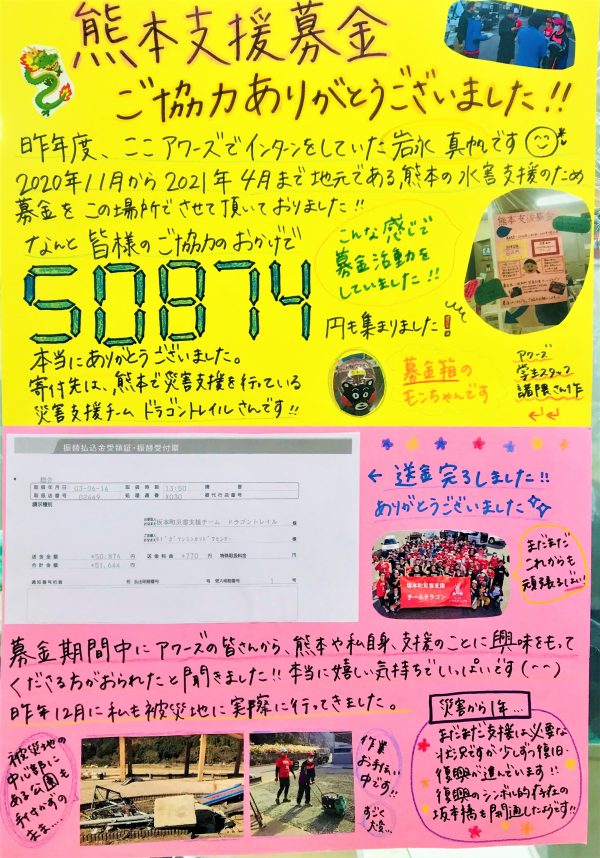 熊本支援募金
ご協力ありがとうございました!!
昨年度、ここアワーズでインターンをしていた岩永 真帆です
2020年11月から2021年4月まで地元である熊本の水害支援のため
募金をこの場所でさせて頂いておりました!!
なんと皆様のご協力のおかげで
50874
円も集まりました!
こんな感じで
募金活動を
していました!!
熊本支援募金
本当にありがとうございました。
寄付先は、熊本で災害支援を行っている
災害支援チーム ドラゴントレイルさんです!!
募金箱の
モンちゃんです
アワーズ
学生スタッフ
諸隈さん作
振替払込金受領証・振替受付票
取扱年月日 03-06-16 取扱時刻 13:50
取扱店番号 02669 処理通番 X030
請求種別
坂本町災害支援チーム ドラゴントレイル 様
送金金額 *50,874 円 送金料金 *770 円 特殊取扱料金 円
合計金額 *51,644 円
← 送金完了しました!!
ありがとうございました
坂本町災害支援
チームドラゴン
まだまだ
これからも
頑張るばい!
募金期間中にアワーズの皆さんから、熊本や私自身、支援のことに興味をもって
くださる方がおられたと聞きました!!本当に嬉しい気持ちでいっぱいです(^^)
昨年12月に私も被災地に実際に行ってきました。
被災地の
中心部に
ある公園も
手付かずの
まま...
作業
お手伝い
中です!!
すごく
大変...
災害から1年...
まだまだ支援は必要な
状況ですが少しずつ復旧・
復興が進んでいます!!
復興のシンボル的存在の
坂本橋も開通したようです!!